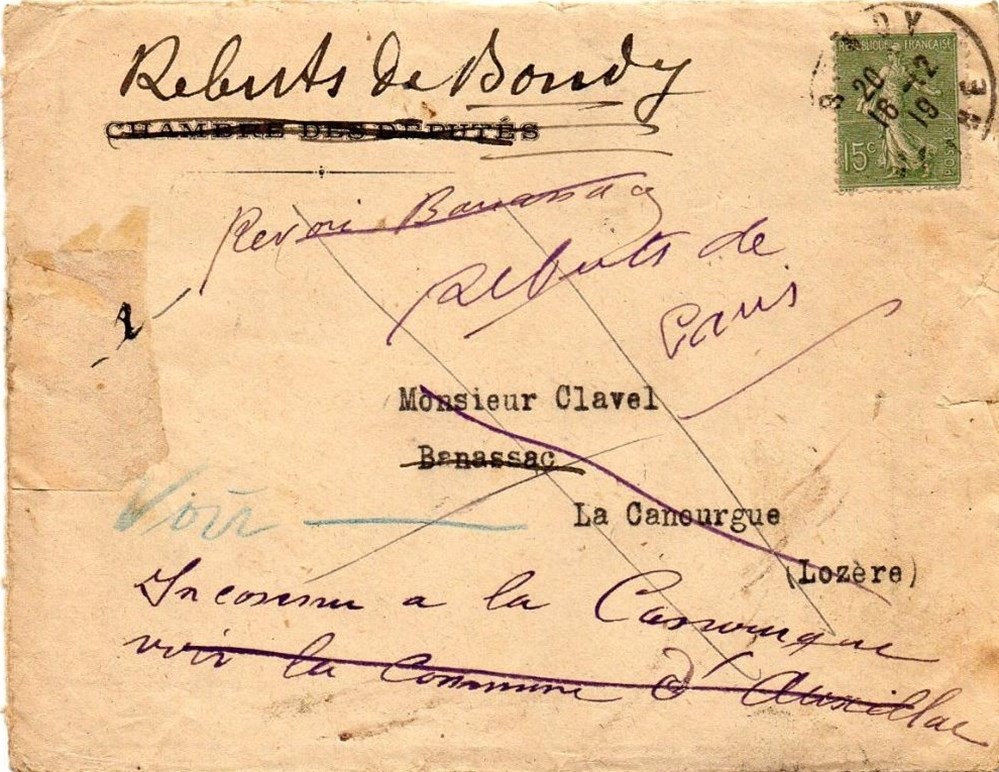 Rebuts de Bondy
CHAMBRE DES DÉPUTÉS
RÉPUBLIQUE FRANÇAISE
15c
POSTES
B NDY
20
18 -12
19
NE
Revoir Banassac
Rebuts de
Paris
1
Monsieur Clavel
Banassac
Voir
La Canourgue
(Lozère)
Inconnu a la Canourgue
voir la Commune d'Auxillac